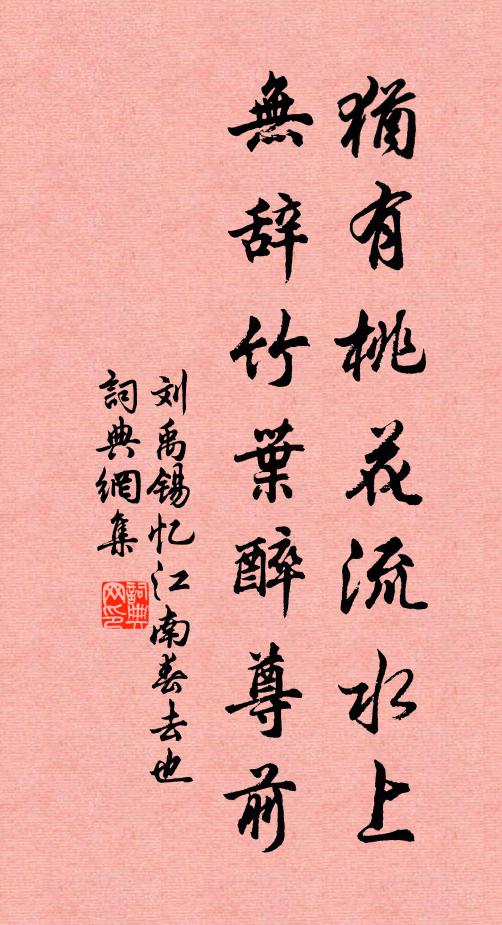 猶有桃花流水上
無辞竹葉醉尊前
刘禹锡忆江南春去也
詞典網集
詞典
网印